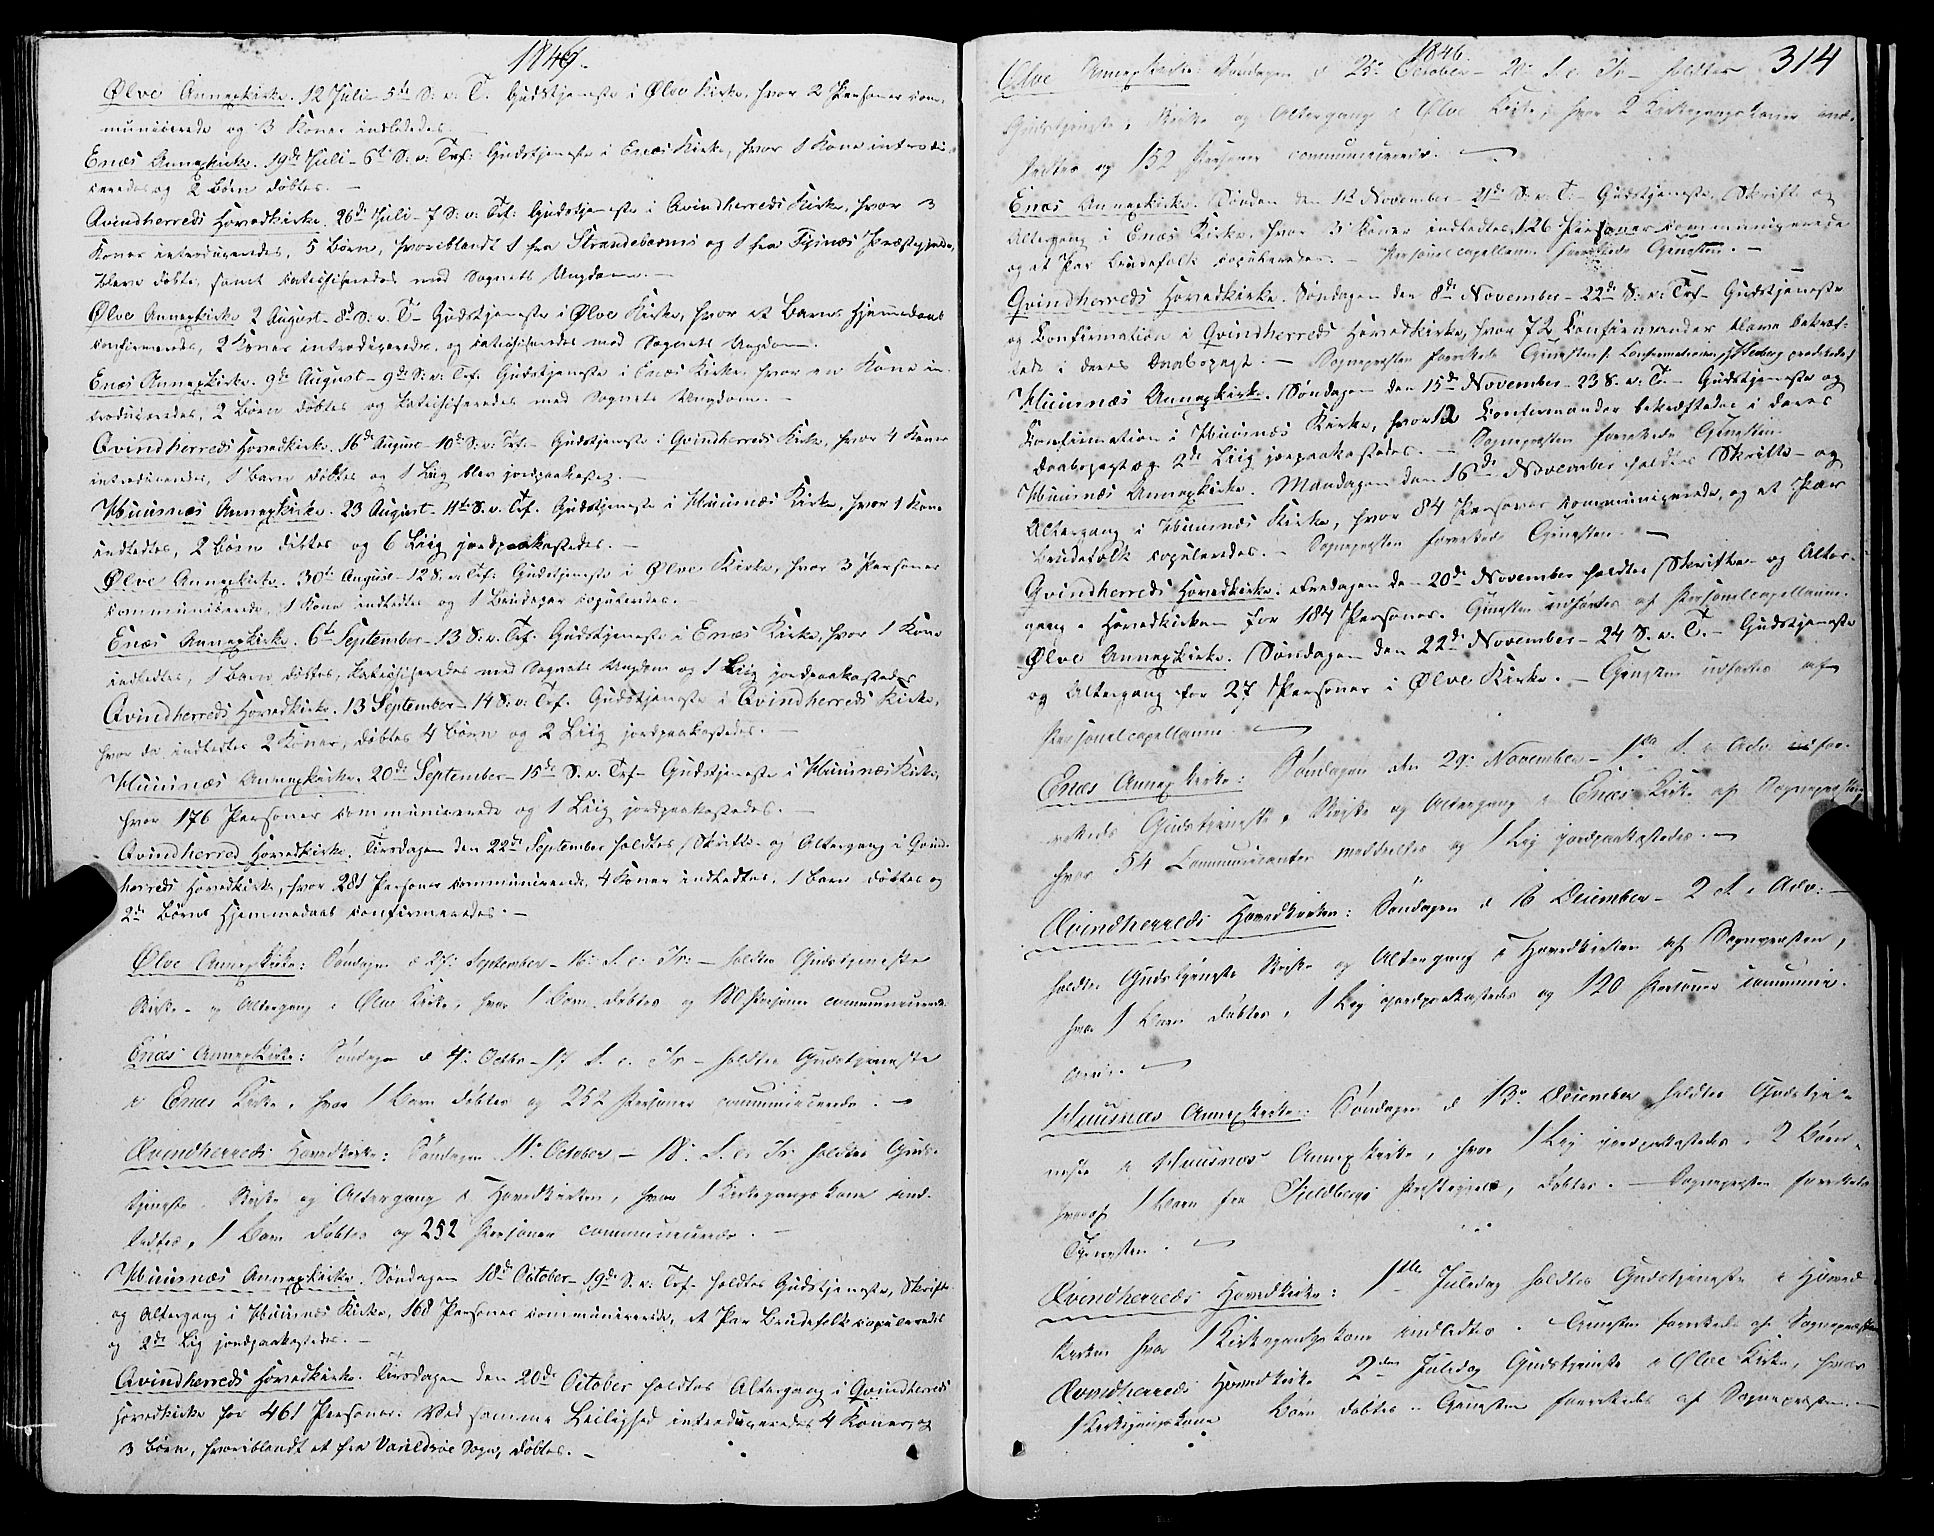 1846.
Ølve Annexkirke. 12 Juli 5te S. e. T. Gudstjeneste i Ølve Kirke, hvor 2 Personer com-
municerede og 3 Koner indledtes. —
Enæs Annexkirke. 19de Juli – 6te S. e. Trf. Gudstjeneste i Enæs Kirke, hvor 1 Kone introdu-
ceredes og 2 Børn døbtes. —
Qvindherreds Hovedkirke. 26de Juli – 7 S. e. Trf. Gudstjeneste i Qvindherreds Kirke, hvor 3
Koner introduceredes, 5 Børn, hvoriblandt 1 fra Strandebarms og 1 fra Præstegjeld,
bleve døbte, samt catechiseredes med Sognets Ungdom. —
Ølve Annexkirke 2 August – 8de S. e. T. – Gudstjeneste i Ølve Kirke, hvor et Barns Hjemmedaab
confirmeredes, 2 Koner introduceredes, og catechiseredes med Sognets Ungdom.
Enæs Annexkirke. 9de August – 9de S. e. Trf. Gudstjeneste i Enæs Kirke, hvor en Kone in-
troduceredes, 2 Børn døbtes og katechiseredes med Sognets Ungdom. —
Qvindherreds Hovedkirke. 16de August – 10de S. e. Trf. – Gudstjeneste i Qvindherreds Kirke, hvor 4 Koner
introduceredes, 1 Barn døbtes og 1 Liig blev jordpaakastet. —
Huusnæs Annexkirke. 23 August – 11te S. e. Trf. Gudstjeneste i Huusnæs Kirke, hvor 1 Kone
indledtes, 2 Børn døbtes og 6 Liig jordpaakastedes. —
Ølve Annexkirke. 30te August – 12 S. e. Trf. Gudstjeneste i Ølve Kirke, hvor 3 Personer
communicerede, 1 Kone indledtes og 1 Brudepar copuleredes. —
Enæs Annexkirke. 6te September – 13 S. e. Trf. Gudstjeneste i Enæs Kirke, hvor 1 Kone
indledtes, 1 Barn døbtes, katechiseredes med Sognets Ungdom og 1 Liig jordpaakastedes
Qvindherreds Hovedkirke. 13 September – 14 S. e. Trf. Gudstjeneste i Qvindherreds Kirke,
hvor der indledtes 2 Koner, døbtes 4 Børn og 2 Liig jordpaakastedes. —
Huusnæs Annexkirke. 20de September – 15de S. e. Trf – Gudstjeneste i Huusnæs Kirke,
hvor 176 Personer communicerede og 1 Liig jordpaakastedes. —
Qvindherred Hovedkirke. Tirsdagen den 22de September holdtes Skrifte- og Altergang i Qvind-
herreds Hovedkirke, hvor 281 Personer communicerede, 4 Koner indledtes, 1 Barn døbtes og
2de Børns Hjemmedaab confirmeredes. —
Ølve Annexkirke: Søndagen d 27: September – 16: S. e. Tr: – holdtes Gudstjeneste
Skrifte- og Altergang i Ølve Kirke, hvor 1 Barn døbtes og 180 Personer communicerede.
Enæs Annexkirke: Søndagen d 4: Octbr – 17 S. e. Tr – holdtes Gudstjeneste
i Enæs Kirke, hvor 1 Barn døbtes og 252 Personer communicerede. —
Qvindherreds Hovedkirke: Søndagen 11: October – 18: S. e. Tr: holdtes Guds-
tjeneste, Skrifte og Altergang i Hovedkirken, hvor 1 Kirkegangskone ind-
ledtes, 1 Barn døbtes og 252 Personer communicerede. —
Huusnæs Annexkirke. Søndagen 18de October – 19de S. e. Trf. holdtes Gudstjeneste, Skrifte-
og Altergang i Huusnæs Kirke, 168 Personer communicerede, et Par Brudefolk copuleredes
og 2de Lig jordpaakastedes. —
Qvindherreds Hovedkirke. Tirsdagen den 20de October holdtes Altergang i Qvindherreds
Hovedkirke for 461 Personer. Ved samme Leilighed introduceredes 4 Koner, og
3 Børn, hvoriblandt et fra Varildsøe Sogn, døbtes. —
1846.
314
Ølve Annexkirke: Søndagen d 25: October – 20: S. e. Tr – holdtes
Gudstjeneste, Skrifte og Altergang i Ølve Kirke, hvor 2 Kirkegangskoner ind-
ledtes og 152 Personer communicerede. —
Enæs Annexkirke. Sønden den 1te November – 21de S. e. T. – Gudstjeneste, Skrift og
Altergang i Enæs Kirke, hvor 3 Koner indledtes, 126 Personer communicerede
og et Par Brudefolk copuleredes. – Personelcapellanen forrettede Tjenesten. —
Qvindherreds Hovedkirke. Søndagen den 8de November – 22de S. e. Trf – Gudstjeneste
og Confirmation i Qvindherreds Hovedkirke, hvor 72 Confirmander bleve bekræf-
tede i deres Daabspagt. – Sognepresten forrettede Tjenesten. Confirmationen, prædikede
Huusnæs Annexkirke. Søndagen den 15de November – 23 S. e. Tr. – Gudstjeneste og
Confirmation i Huusnæs Kirke, hvor 12 Confirmander bekræftedes i deres
Daabspagt og 2de Liig jordpaakastedes. – Sognepresten forrettede Tjenesten.
Huusnæs Annexkirke. Mandagen den 16de November holdtes Skrifte- og
Altergang i Huusnæs Kirke, hvor 84 Personer communicerede, og et Par
Brudefolk copuleredes. – Sognepresten forrettede Tjenesten. —
Qvindherreds Hovedkirke. Fredagen den 20de November holdtes Skrifte- og Alter-
gang i Hovedkirken for 184 Personer. Tjenesten udførtes af Personelcapellanen.
Ølve Annexkirke. Søndagen den 22de November – 24 S. e. T. – Gudstjeneste
og Altergang for 27 Personer i Ølve Kirke. – Tjenesten udførtes af
Personelcapellanen. —
Enæs Annexkirke: Søndagen den 29: November – 1ste S. i Adv for-
rettedes Gudstjeneste, Skrifte og Altergang i Enæs Kirke af Sognepresten,
hvor 54 Communicanter meddeeltes og 1 Lig jordpaakastedes. —
Qvindherreds Hovedkirke: Søndagen d 6 December – 2 S. i Adv: –
holdtes Gudstjeneste Skrifte og Altergang i Hovedkirken af Sognepresten,
hvor 1 Barn døbtes, 1 Lig jordpaakastedes og 120 Personer communi-
cerede. —
Huusnæs Annexkirke: Søndagen d 13: December holdtes Gudstje-
neste i Huusnæs Annexkirke, hvor 1 Lig jordpaakastedes, 2 Børn,
hvoraf 1 Barn fra Fjeldbergs Prestegjeld, døbtes. – Sognepresten forrettede
Tjenesten. —
Qvindherreds Hovedkirke: 1ste Juledag holdtes Gudstjeneste i Hoved-
kirken hvor 1 Kirkegangskone indledtes. – Tjenesten forrettedes af Sognepresten
Qvindherreds Hovedkirke 2den Juledag Gudstjeneste i Ølve Kirke, hvor
1 Kirkegangskone Børn døbtes – Tjenesten forrettedes af Sognepresten. —